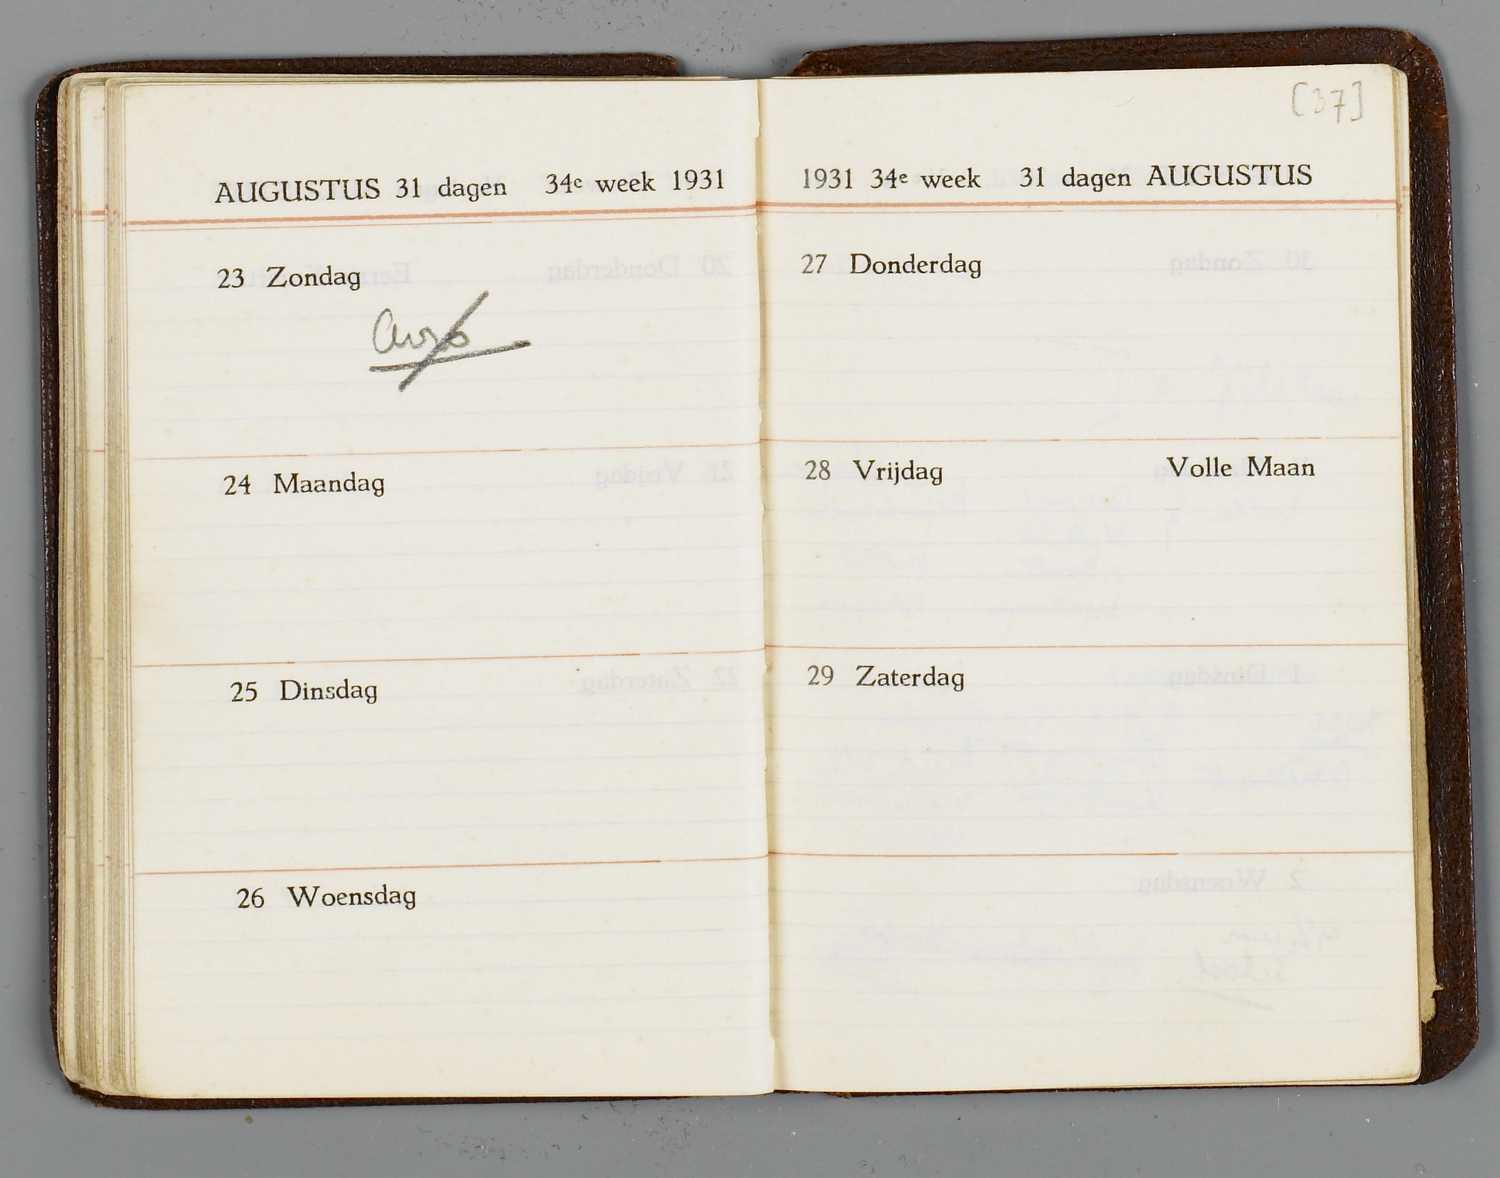 AUGUSTUS 31 dagen 34e week 1931
23 Zondag
24 Maandag
25 Dinsdag
26 Woensdag
[37]
1931 34e week 31 dagen AUGUSTUS
27 Donderdag
28 Vrijdag Volle Maan
29 Zaterdag